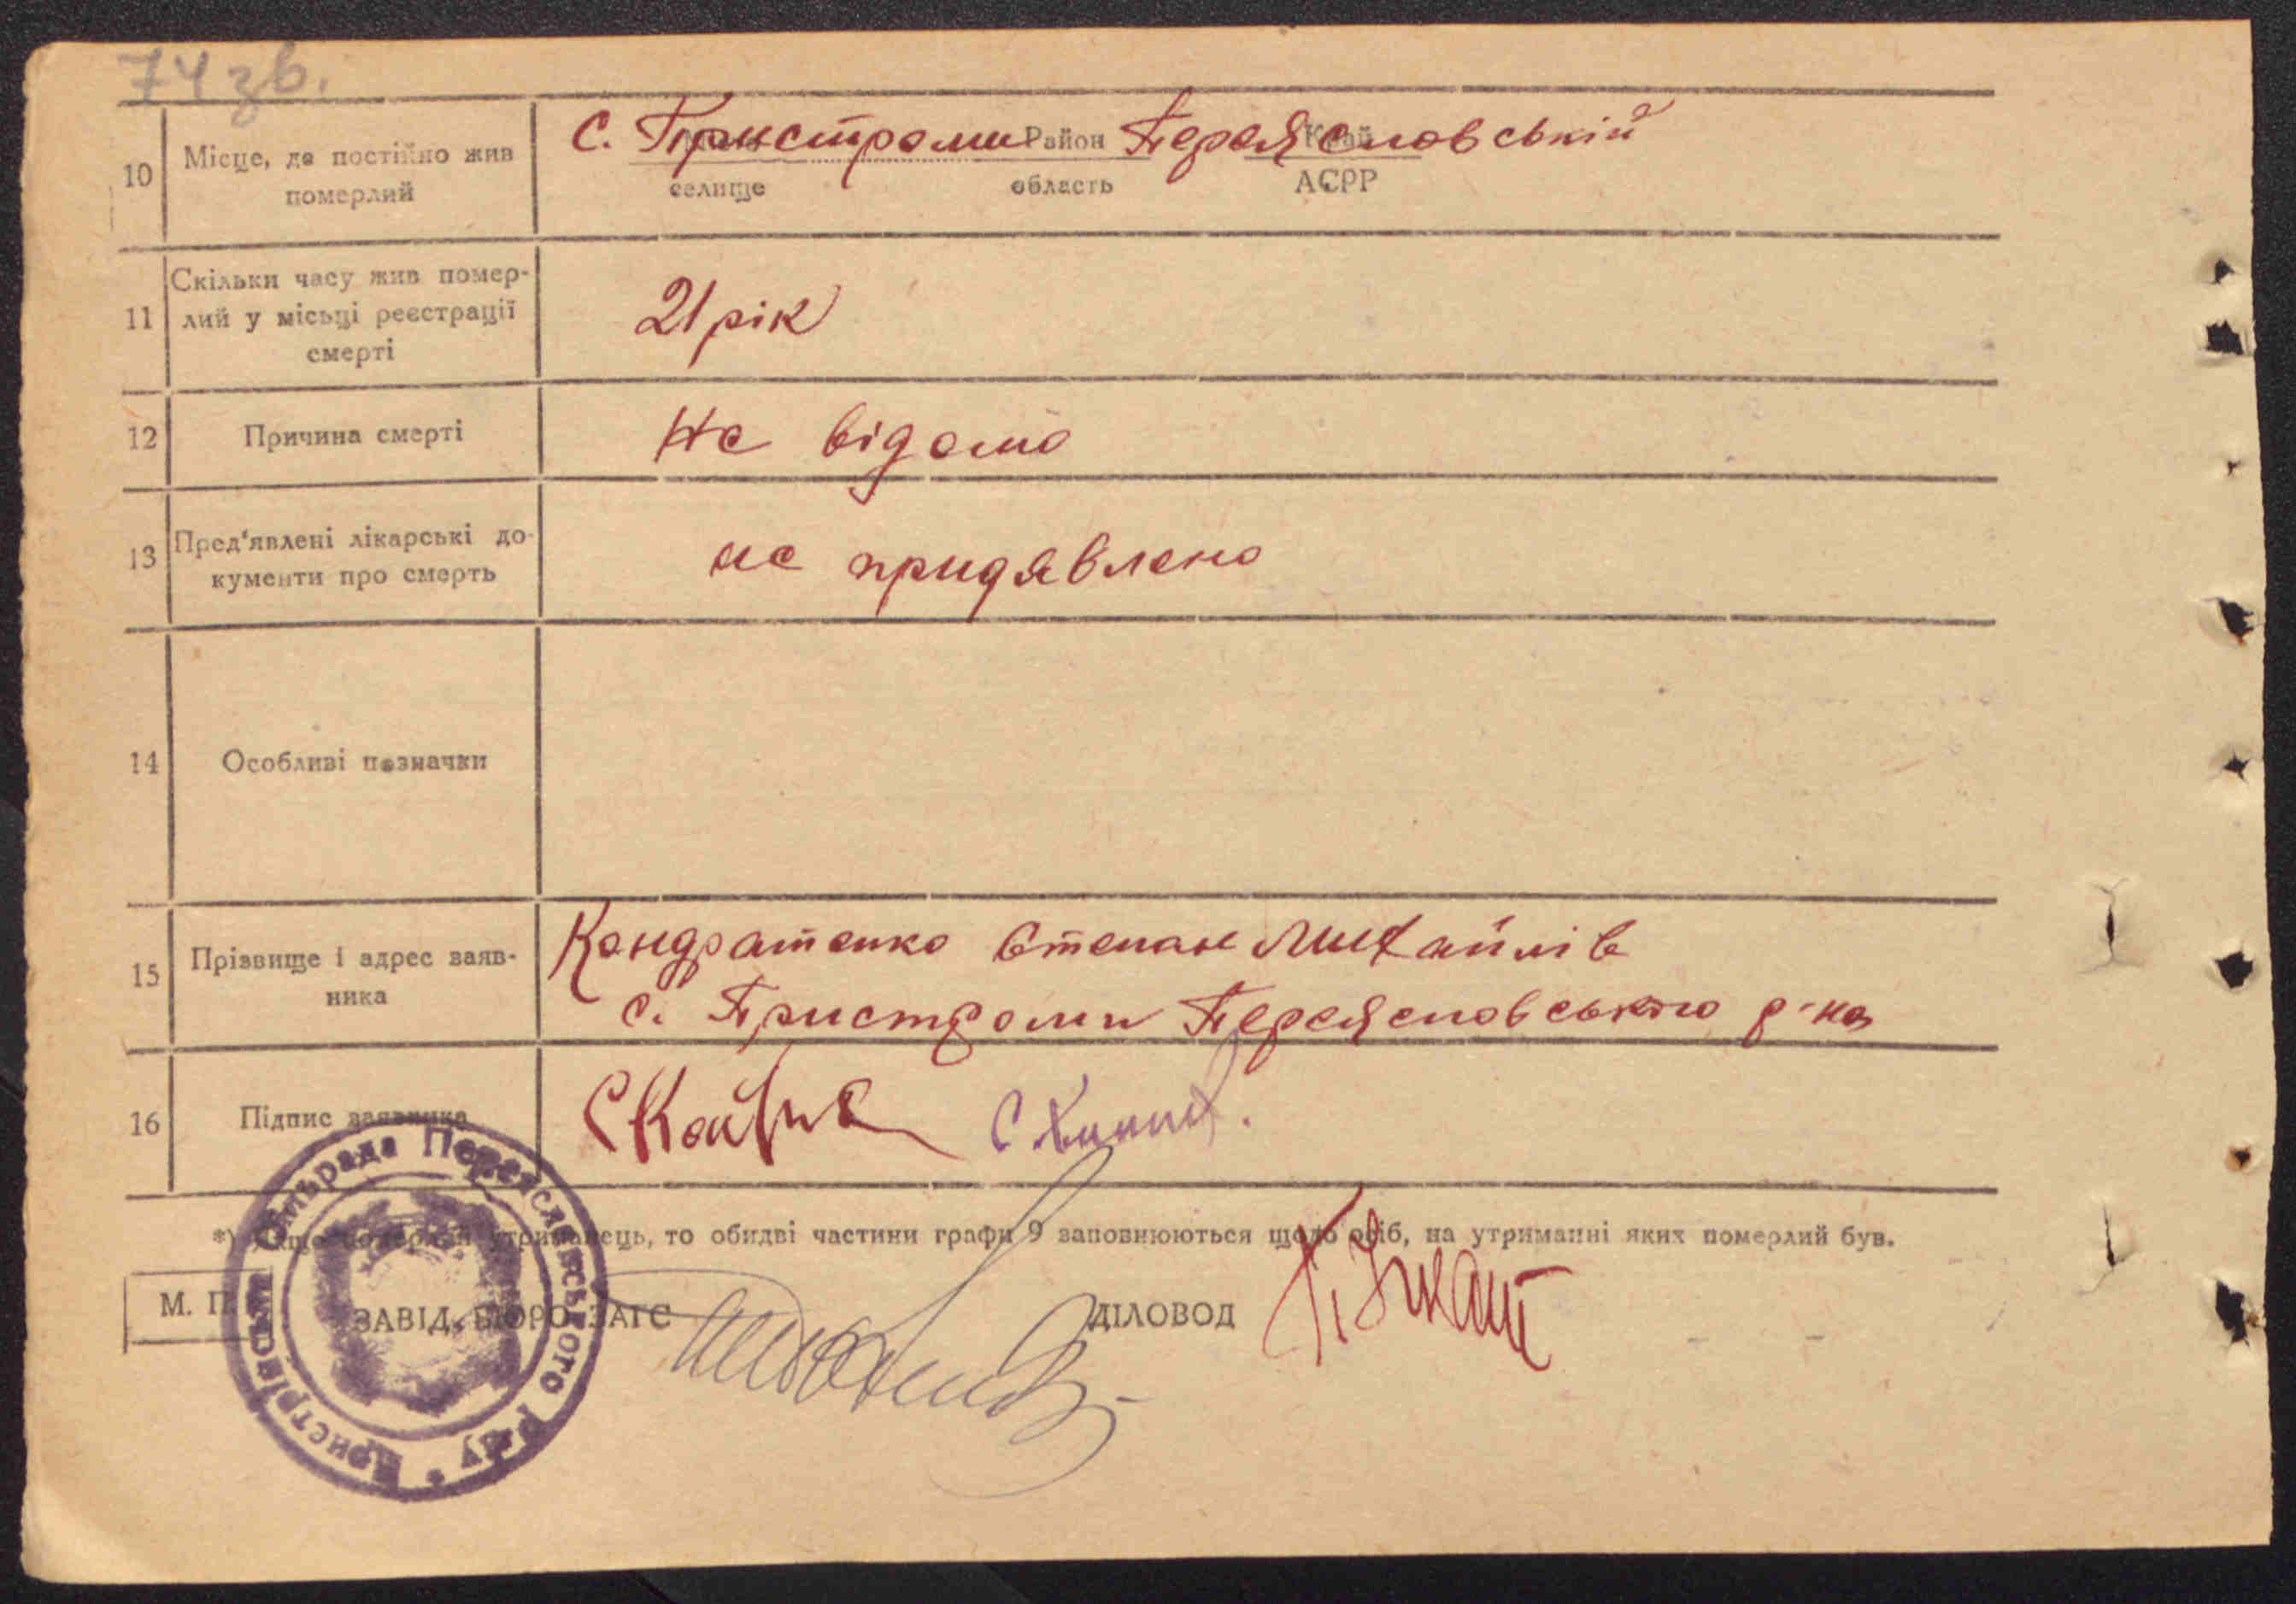 74 зв.
10 Місце, де постійно жив померлий
С. Пристроми Район Переясловській Край
селище область АСРР
11 Скільки часу жив помер-
лий у місьці реєстрації
смерті
21 рік
12 Причина смерті
Не відомо
13 Пред'явлені лікарські до-
кументи про смерть
не придявлено
14 Особливі позначки
15 Прізвище і адрес заяв-
ника
Кондратенко Степан Михайлів
с. Пристроми Переясловського р-на
16 Підпис заявника
*) Якщо померлий утриманець, то обидві частини графи 9 заповнюються щодо осіб, на утриманні яких померлий був.
М. П. ЗАВІД. БЮРО ЗАГС ДІЛОВОД
Сільрада Переяславського р-ну * Пристрімська